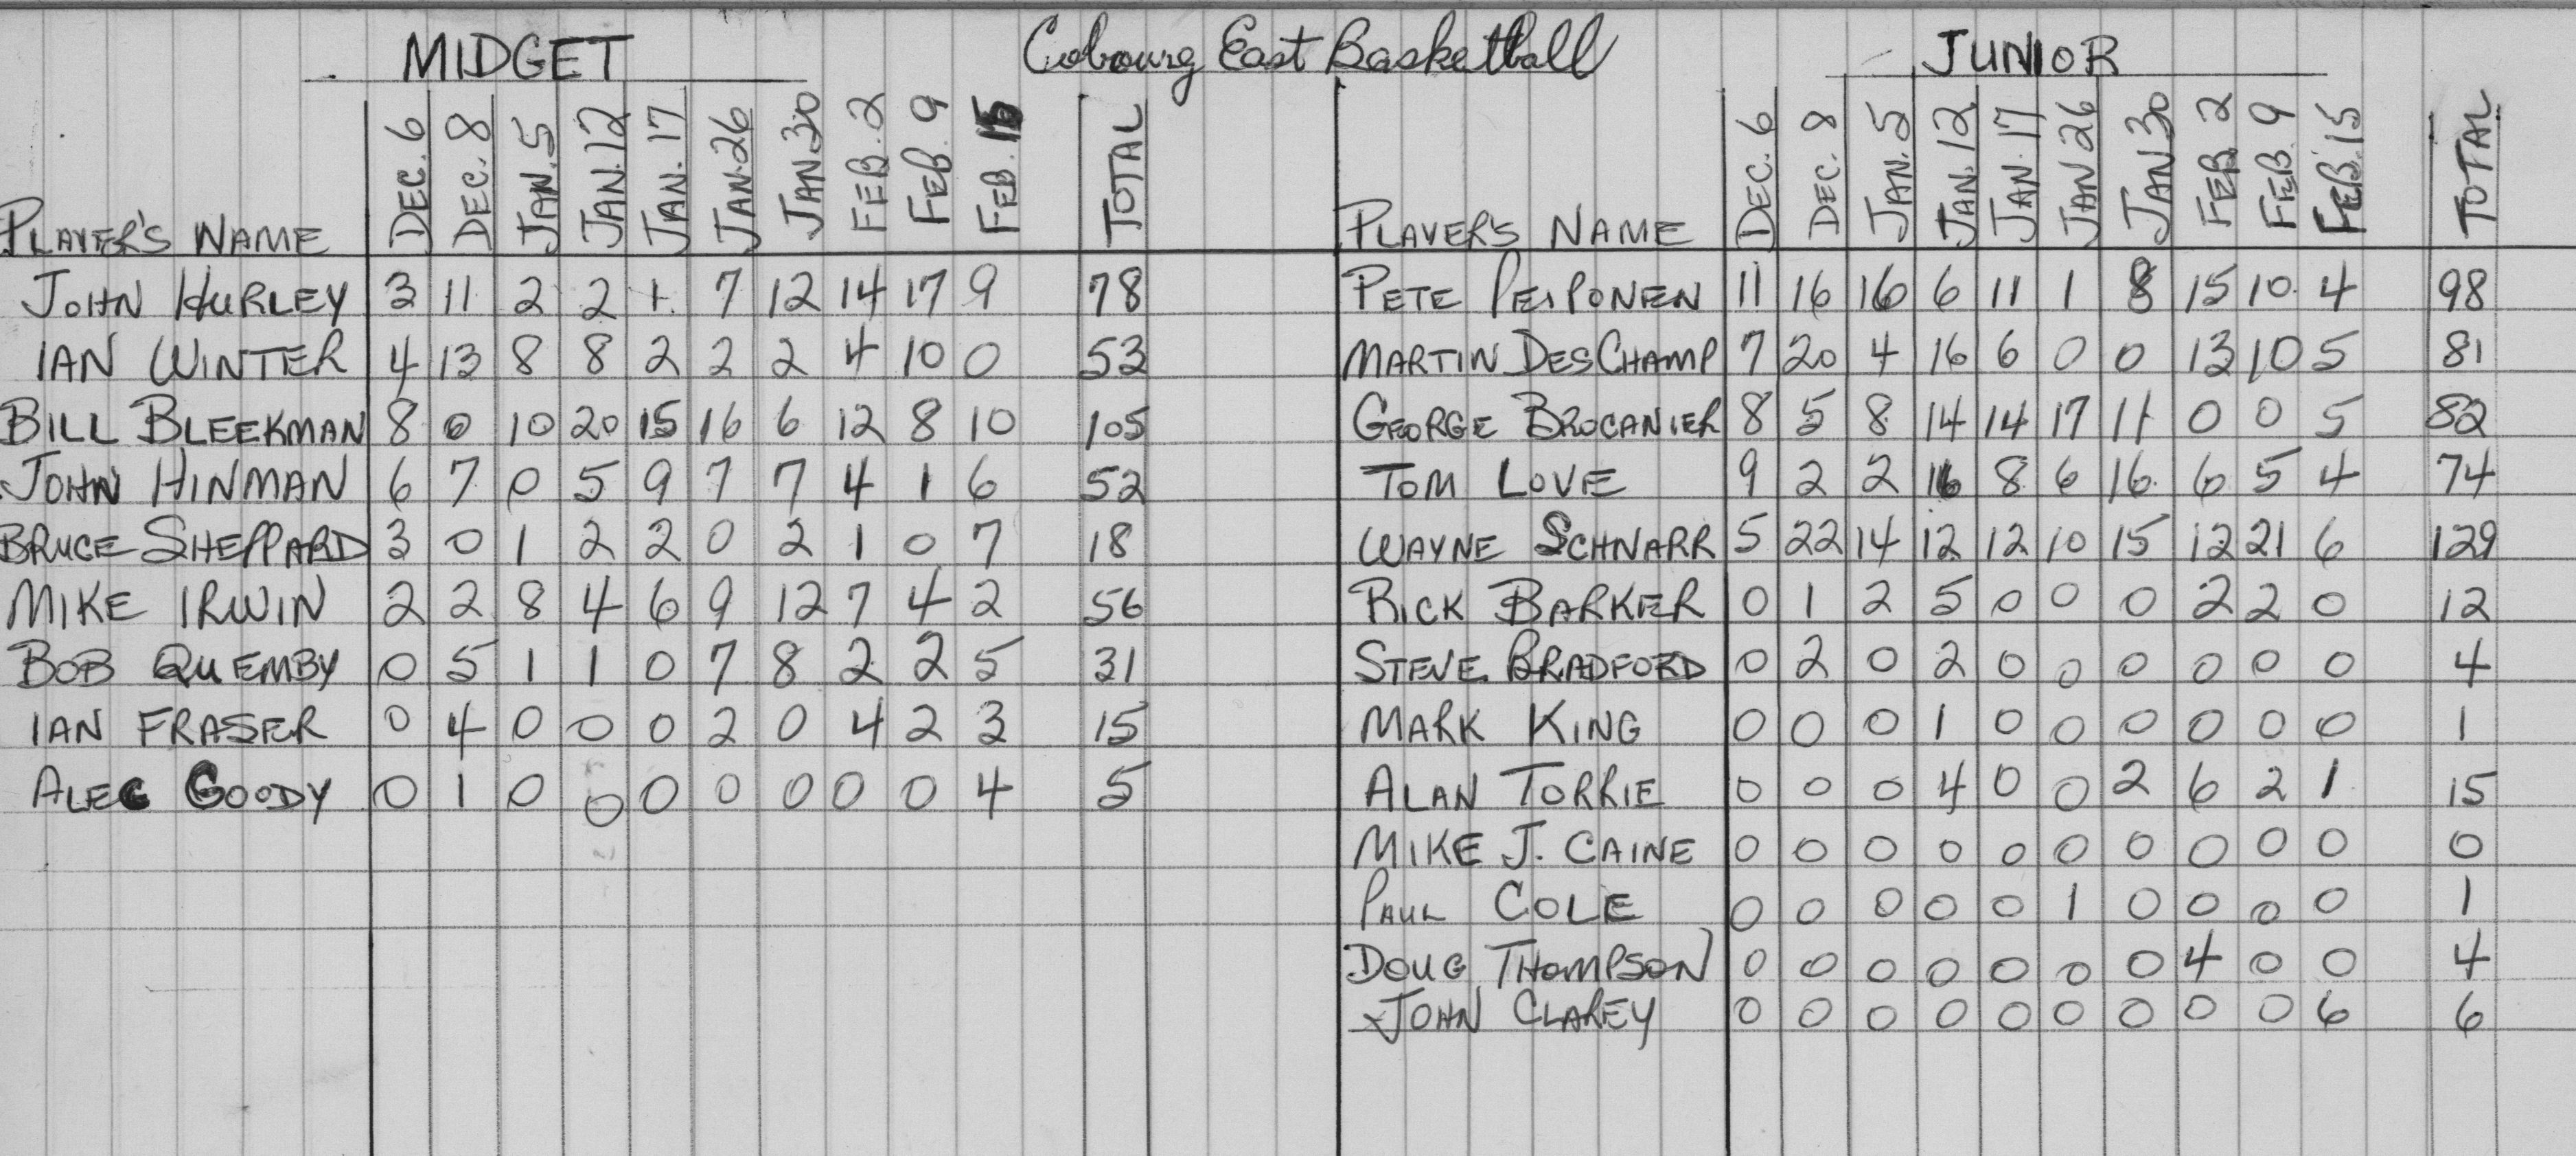 MIDGET Cobourg East Basketball JUNIOR
PLAYER'S NAME DEC. 6 DEC. 8 JAN. 5 JAN. 12 JAN. 17 JAN. 26 JAN. 30 FEB. 2 FEB. 9 FEB. 15 TOTAL
JOHN HURLEY 3 11 2 2 1 7 12 14 17 9 78
IAN WINTER 4 13 8 8 2 2 2 4 10 0 53
BILL BLEEKMAN 8 0 10 20 15 16 6 12 8 10 105
JOHN HINMAN 6 7 0 5 9 7 7 4 1 6 52
BRUCE SHEPPARD 3 0 1 2 2 0 2 1 0 7 18
MIKE IRWIN 2 2 8 4 6 9 12 7 4 2 56
BOB QUEMBY 0 5 1 1 0 7 8 2 2 5 31
IAN FRASER 0 4 0 0 0 2 0 4 2 3 15
ALEC GOODY 0 1 0 0 0 0 0 0 0 4 5
PLAYER'S NAME DEC. 6 DEC. 8 JAN. 5 JAN. 12 JAN. 17 JAN 26 JAN 30 FEB. 2 FEB. 9 FEB. 15 TOTAL
PETE PEIPONEN 11 16 16 6 11 1 8 15 10 4 98
MARTIN DESCHAMP 7 20 4 16 6 0 0 13 10 5 81
GEORGE BROCANIER 8 5 8 14 14 17 11 0 0 5 82
TOM LOVE 9 2 2 16 8 6 16 6 5 4 74
WAYNE SCHNARR 5 22 14 12 12 10 15 12 21 6 129
RICK BARKER 0 1 2 5 0 0 0 2 2 0 12
STEVE BRADFORD 0 2 0 2 0 0 0 0 0 0 4
MARK KING 0 0 0 1 0 0 0 0 0 0 1
ALAN TORRIE 0 0 0 4 0 0 2 6 2 1 15
MIKE J. CAINE 0 0 0 0 0 0 0 0 0 0 0
PAUL COLE 0 0 0 0 0 1 0 0 0 0 1
DOUG THOMPSON 0 0 0 0 0 0 0 4 0 0 4
JOHN CLAREY 0 0 0 0 0 0 0 0 0 6 6